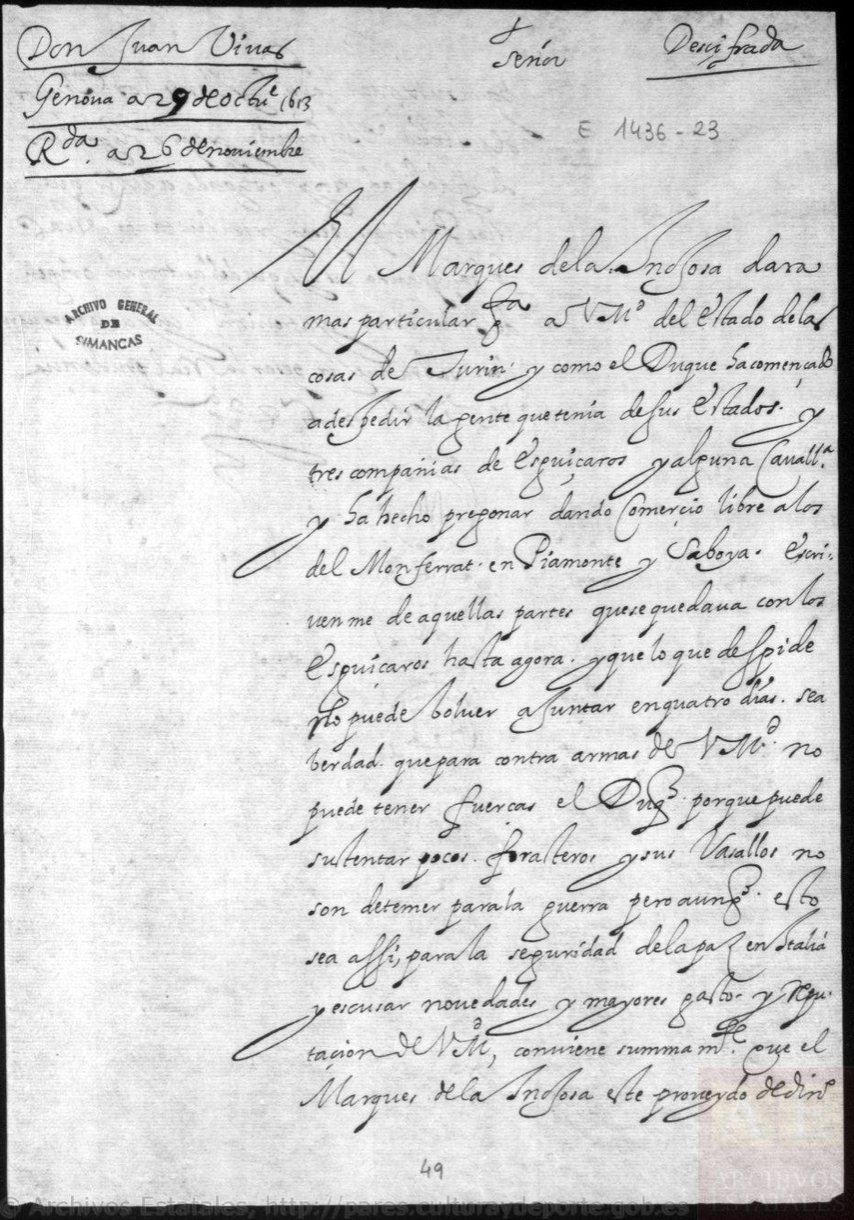 Don Juan Vivas
Genova a 29 de octu.e 1613
R.da a 26 de noviembre
†
Señor
Descifrada
E 1436-23
ARCHIVO GENERAL
DE
SIMANCAS
El Marques de la Inojosa dara
mas particular q.ta a V M.d del estado de las
cosas de Turin. y como el Duque ha començado
a despedir la gente que tenia de sus estados. y
tres compañias de esguiçaros y alguna Cavall.a
y ha hecho pregonar dando Comerçio libre a los
del Monferrat. en Piamonte y Saboya. escri-
venme de aquellas partes que se quedava con los
esguiçaros hasta agora. y que lo que despide
lo puede bolver a Juntar en quatro dias. sea
berdad. que para contra armas de V M.d no
puede tener fuercas el Duq.e porque puede
sustentar pocos. forasteros y sus Vasallos no
son de temer para la guerra pero aunq.e esto
sea assi, para la seguridad de la paz en Italia
y escusar novedades y mayores gasto. y repu-
tacion de V M.d, conviene summam.te que el
Marques de la Inojosa este proveydo de din.o
49
© Archivos Estatales, http://pares.culturaydeporte.gob.es
ARCHIVOS
ESTATALES